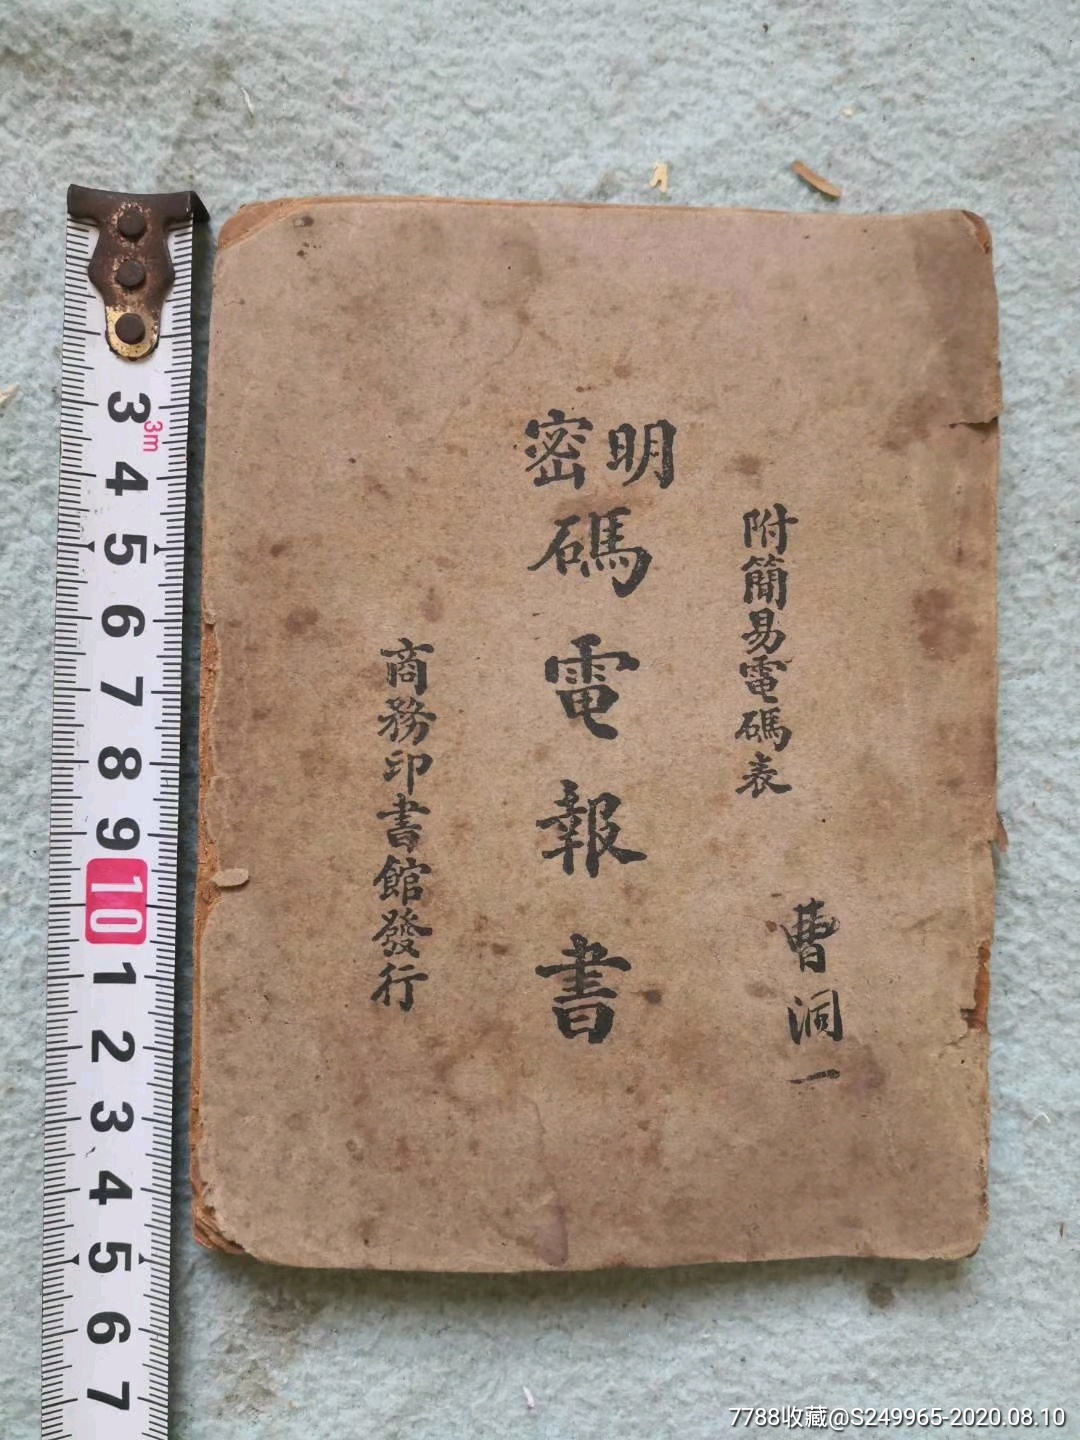 附簡易電碼表
曹洞一
明密碼電報書
商務印書館發行
3
3m
4
5
6
7
8
9
10
1
2
3
4
5
6
7
7788收藏@S249965-2020.08.10